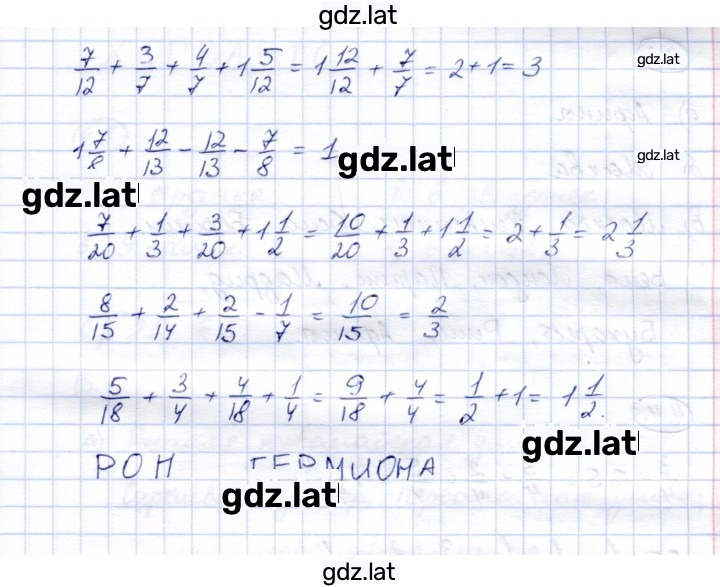 gdz.lat
7/12 + 3/7 + 4/7 + 1 5/12 = 1 12/12 + 7/7 = 2 + 1 = 3
gdz.lat
1 7/8 + 12/13 - 12/13 - 7/8 = 1
gdz.lat
gdz.lat
gdz.lat
7/20 + 1/3 + 3/20 + 1 1/2 = 10/20 + 1/3 + 1 1/2 = 2 + 1/3 = 2 1/3
8/15 + 2/14 + 2/15 - 1/7 = 10/15 = 2/3
5/18 + 3/4 + 4/18 + 1/4 = 9/18 + 4/4 = 1/2 + 1 = 1 1/2.
gdz.lat
РОН ГЕРМИОНА
gdz.lat
gdz.lat